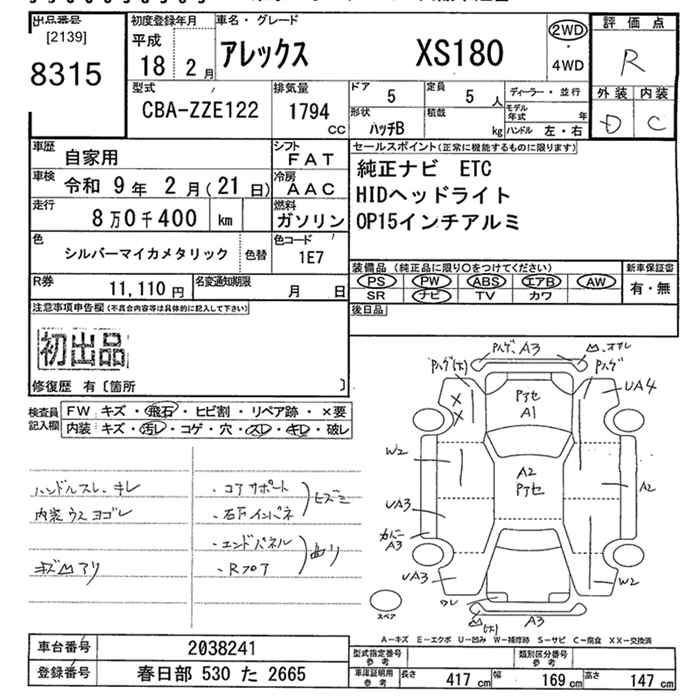 出品番号
[2139]
8315
初度登録年月
平成
18 2月
車名・グレード
アレックス XS180
2WD
・
4WD
評価点
R
外装 内装
D C
型式
CBA-ZZE122
排気量
1794
cc
ドア
5
定員
5 人
形状
ハッチB
積載
kg
ディーラー・並行
モデル年式 年
ハンドル 左・右
車歴 自家用
シフト
FAT
車検 令和 9年 2月(21日)
冷房
AAC
走行 8万0千400 km
燃料
ガソリン
色
シルバーマイカメタリック
色替
色コード
1E7
R券 11,110円
名変通知期限 月 日
セールスポイント(正常に機能するものに限ります)
純正ナビ ETC
HIDヘッドライト
OP15インチアルミ
装備品(純正品に限り○をつけてください)
PS PW ABS エアB AW
SR ナビ TV カワ
新車保証書
有・無
後日品
注意事項申告欄(不具合内容等は具体的に記入して下さい)
初出品
修復歴 有〔箇所 〕
検査員
記入欄
FW キズ・飛石・ヒビ割・リペア跡・×要
内装 キズ・汚レ・コゲ・穴・スレ・キレ・破レ
ハンドルスレ、キレ
内装ウスヨゴレ
キズ凹アリ
・コアサポート
・右Fインパネ
ヒズミ
・エンドパネル
・Rフロア
曲リ
Pハゲ、A3
Pハゲ(大)
Pハゲ
UA4
Pアセ
A1
W2
A2
Pアセ
A2
UA3
カバー
A3
UA3
W2
ワレ
A3
スペア
A-キズ E-エクボ U-凹み W-補修跡 S-サビ C-腐食 XX-交換済
車台番号 2038241
登録番号 春日部 530 た 2665
型式指定番号
参考
類別区分番号
参考
車庫証明用
参考
長さ 417 cm 幅 169 cm 高さ 147 cm